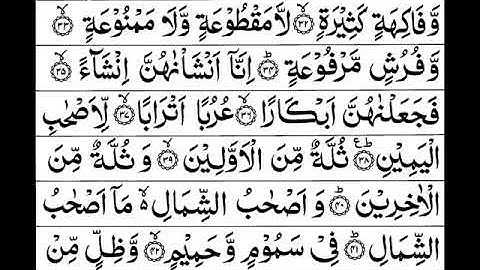 وَّفَاكِهَةٍ كَثِيْرَةٍ ۙ﴿۳۲﴾ لَّا مَقْطُوْعَةٍ وَّلَا مَمْنُوْعَةٍ ۙ﴿۳۳﴾
وَّفُرُشٍ مَّرْفُوْعَةٍ ؕ﴿۳۴﴾ اِنَّاۤ اَنْشَاْنٰهُنَّ اِنْشَآءً ۙ﴿۳۵﴾
فَجَعَلْنٰهُنَّ اَبْكَارًا ۙ﴿۳۶﴾ عُرُبًا اَتْرَابًا ۙ﴿۳۷﴾ لِّاَصْحٰبِ
الْيَمِيْنِ ؕ﴿۳۸﴾ ثُلَّةٌ مِّنَ الْاَوَّلِيْنَ ۙ﴿۳۹﴾ وَثُلَّةٌ مِّنَ
الْاٰخِرِيْنَ ؕ﴿۴۰﴾ وَاَصْحٰبُ الشِّمَالِ ۙ۬ مَاۤ اَصْحٰبُ
الشِّمَالِ ؕ﴿۴۱﴾ فِيْ سَمُوْمٍ وَّحَمِيْمٍ ۙ﴿۴۲﴾ وَّظِلٍّ مِّنْ